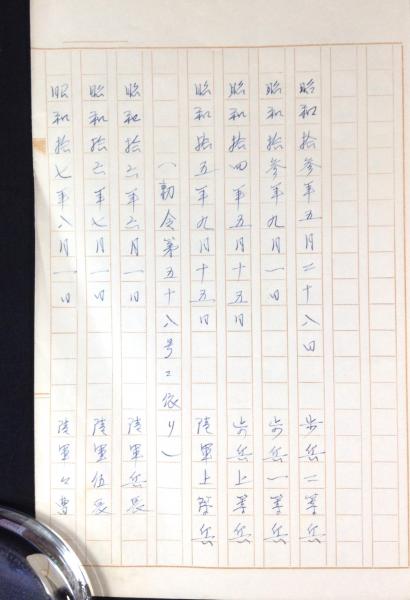 昭和拾参年五月二十八日 歩兵二等兵
昭和拾参年九月一日 歩兵一等兵
昭和拾四年五月十五日 歩兵上等兵
昭和拾五年九月十五日 陸軍上等兵
(勅令第五十八号ニ依リ)
昭和拾六年六月一日 陸軍兵長
昭和拾六年七月一日 陸軍伍長
昭和拾七年八月一日 陸軍軍曹